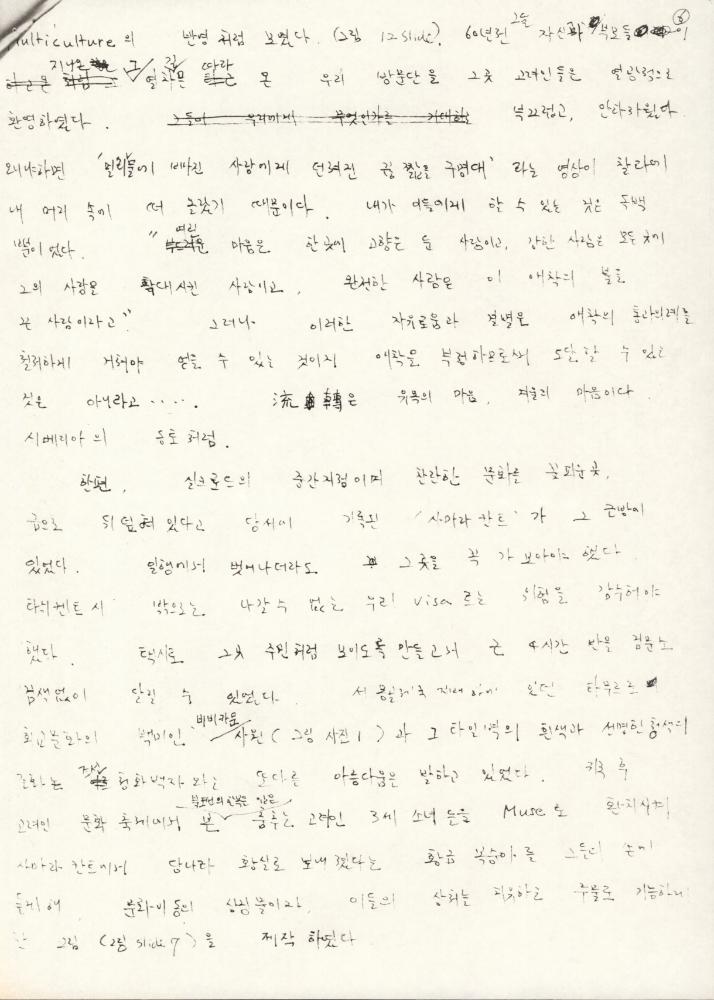 ⑥
Multiculture의 반영처럼 보였다. (그림 12 slide). 60년전 그들 자신과 부모들이
지나온 그 길 따라 열차로 온 우리 방문단을 그곳 고려인들은 열광적으로
환영하였다. 부끄럽고, 안타까웠다.
왜냐하면 '밀리들에 빠진 사람에게 던져진 끈 짧은 구명대' 라는 영상이 찰라에
내 머리 속에 떠 올랐기 때문이다. 내가 이들에게 할 수 있는 것은 독백
뿐이었다. "여린 마음은 한곳에 고향을 둔 사람이고, 강한 사람은 모든 곳에
그의 사랑을 확대시킨 사람이고, 완전한 사람은 이 애착의 불을
끈 사람이라고" 그러나 이러한 자유로움과 결별은 애착의 통과의례를
철저하게 거쳐야 얻을 수 있는 것이지 애착을 부정함으로써 도달할 수 있는
것은 아니라고 ‥‥. 流轉은 유목의 마음, 겨울의 마음이다.
시베리아의 동토처럼.
한편, 실크로드의 중간지점이며 찬란한 문화를 꽃피운 곳,
금으로 뒤덮혀 있다고 당서에 기록된 '사마라칸트'가 그 근방에
있었다. 일행에서 벗어나더라도 그곳을 꼭 가 보아야 했다.
타쉬켄트시 밖으로는 나갈 수 없는 우리 visa로는 위험을 감수해야
했다. 택시로 그곳 주민처럼 보이도록 만들고서 근 4시간 반을 검문소
검색없이 달릴 수 있었다. 서 몽골제국 지배하에 있던 타무르
회교문화의 백미인 비비카눔 사원 (그림 사진 1)과 그 타일벽의 흰색과 선명한 청색의
조화는 조선 청화백자와는 또다른 아름다움을 발하고 있었다. 귀국 후
고려인 문화 축제에서 본 춤추는 고려인 3세 소녀들을 Muse로 환치시켜
사마라칸트에서 당나라 황실로 보내졌다는 황금 복숭아를 그들의 손에
들게 해 문화이동의 상징물이자, 이들의 상처를 치유하고 주물로 기능하게
한 그림 (그림 slide 7)을 제작하였다.